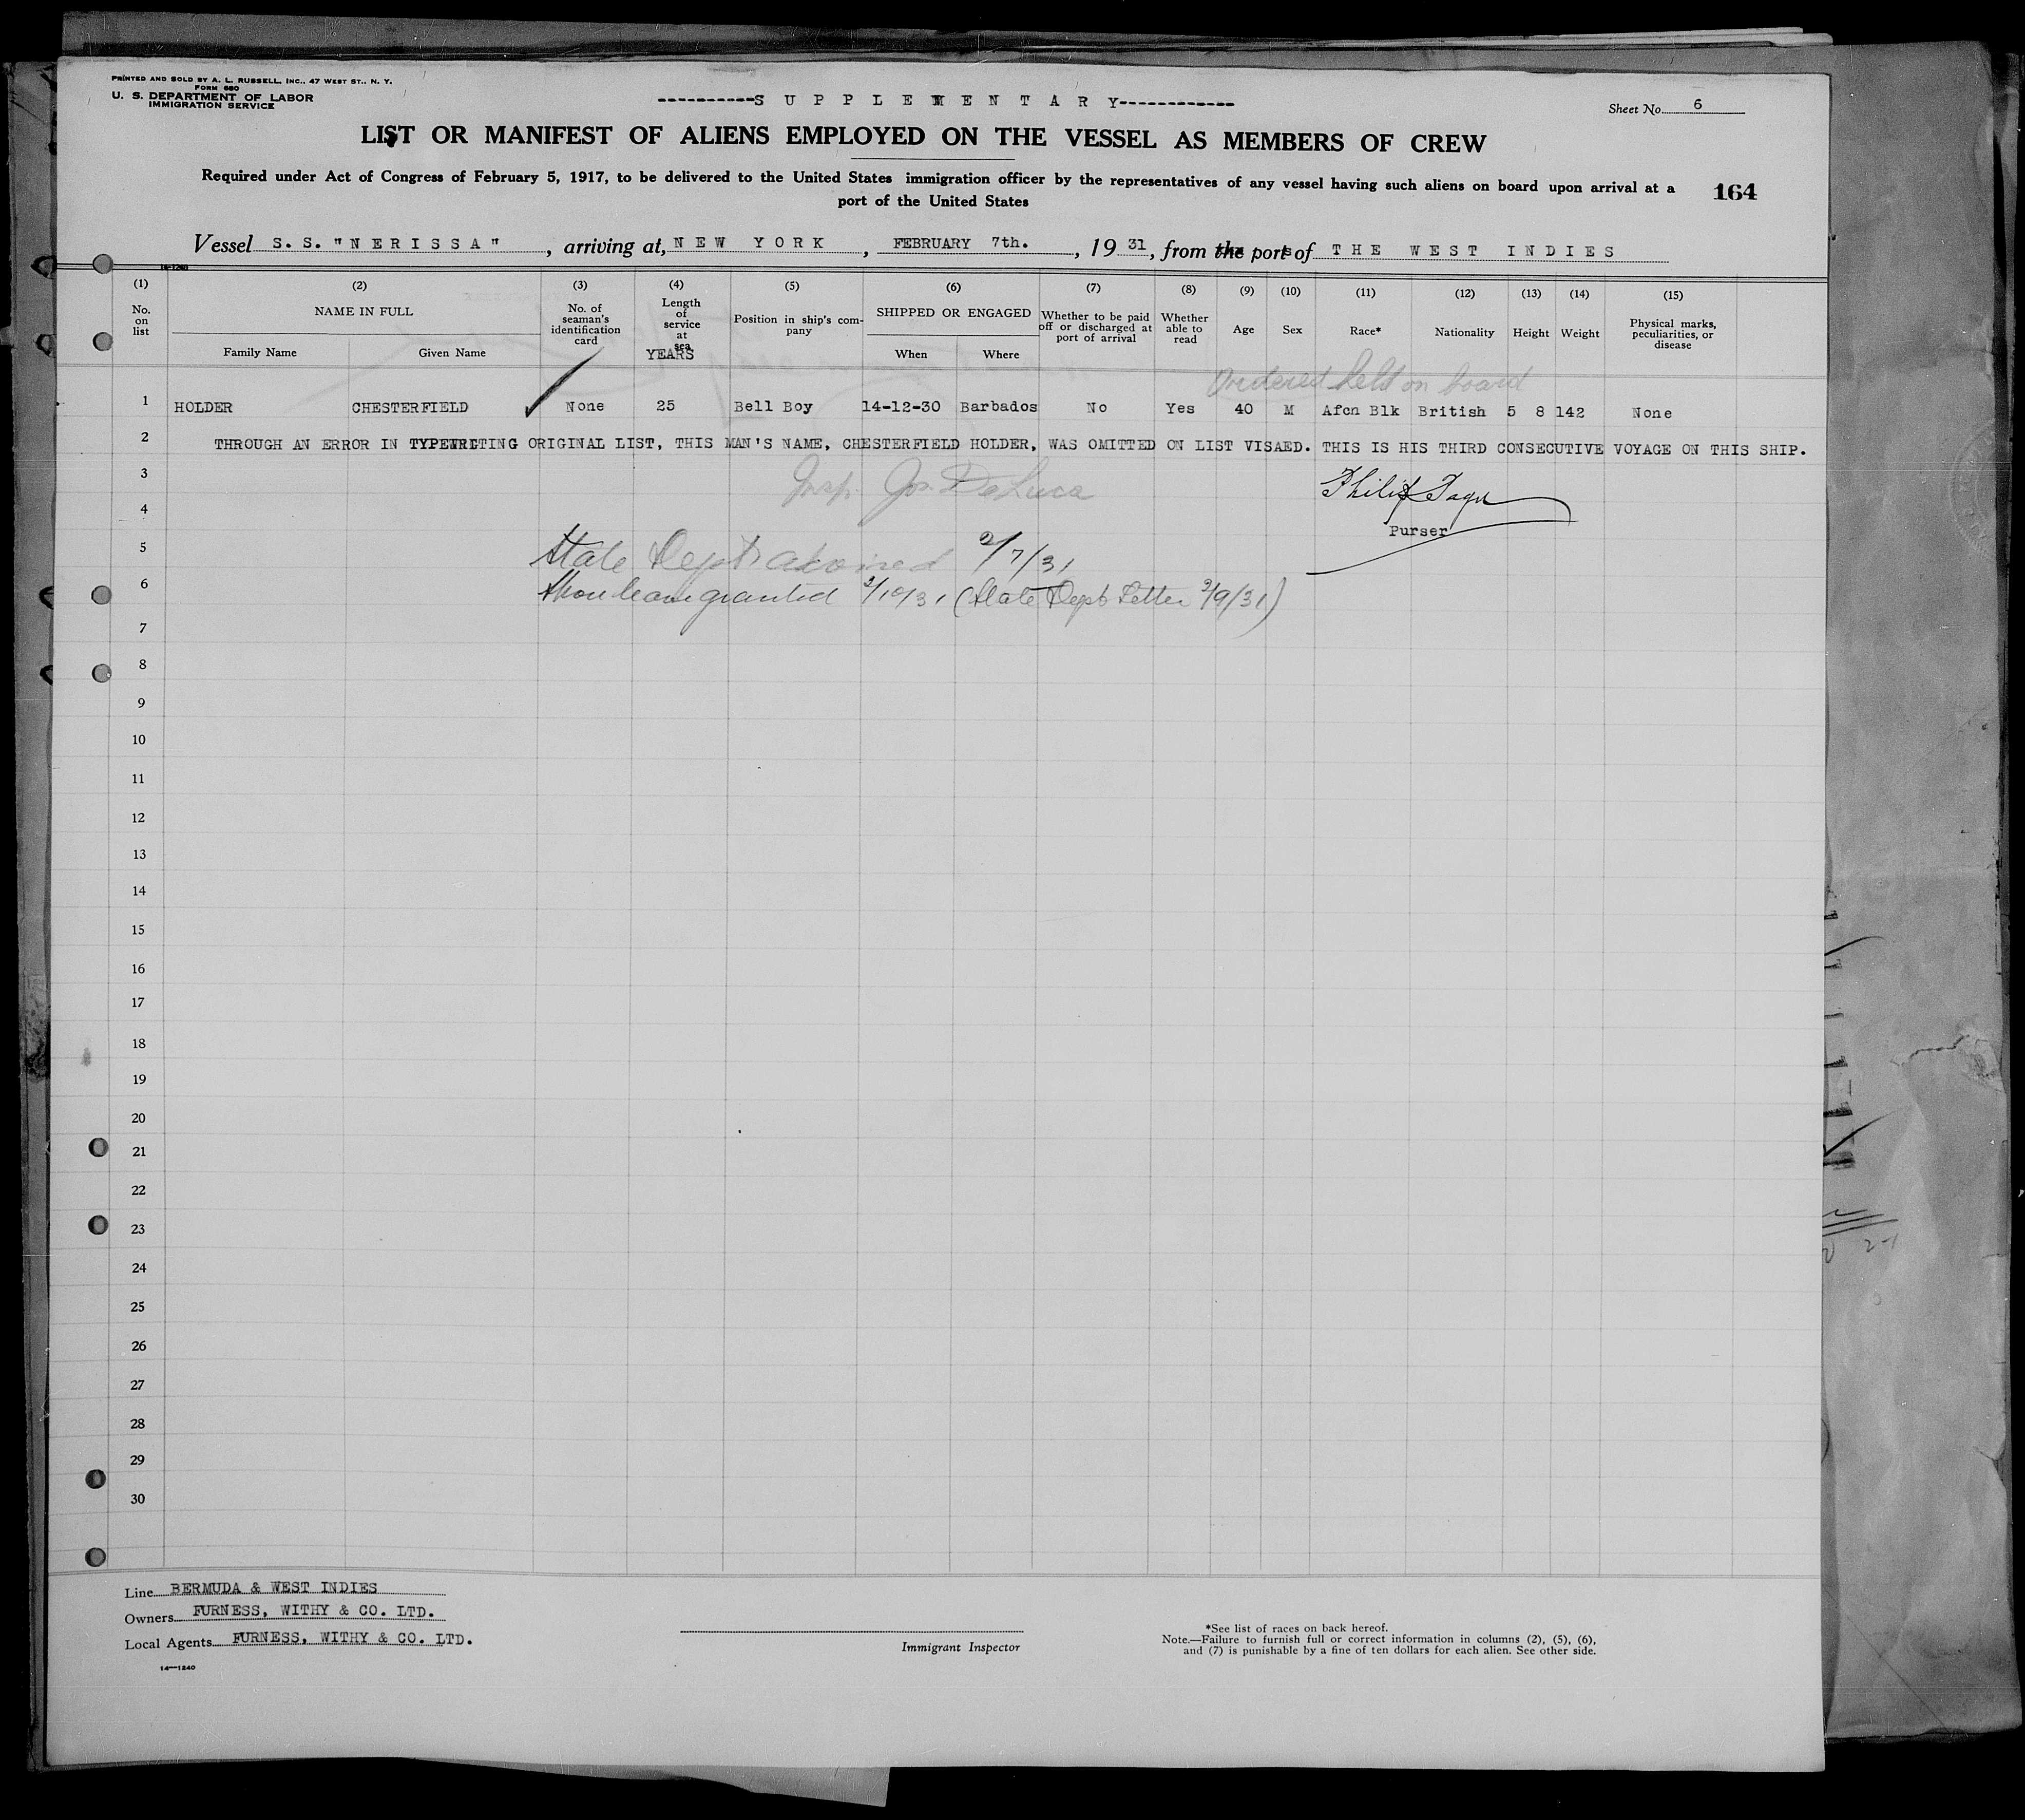 PRINTED AND SOLD BY A. L. RUSSELL, INC., 47 WEST ST., N. Y.
FORM 680
U. S. DEPARTMENT OF LABOR
IMMIGRATION SERVICE
----------S U P P L E M E N T A R Y------------
Sheet No. 6
LIST OR MANIFEST OF ALIENS EMPLOYED ON THE VESSEL AS MEMBERS OF CREW
Required under Act of Congress of February 5, 1917, to be delivered to the United States immigration officer by the representatives of any vessel having such aliens on board upon arrival at a
port of the United States
164
Vessel S. S. "N E R I S S A", arriving at, N E W Y O R K, FEBRUARY 7th., 19 31, from the ports of T H E W E S T I N D I E S
(1) (2) (3) (4) (5) (6) (7) (8) (9) (10) (11) (12) (13) (14) (15)
No. on list
NAME IN FULL
Family Name
Given Name
No. of seaman's identification card
Length of service at sea
YEARS
Position in ship's company
SHIPPED OR ENGAGED
When
Where
Whether to be paid off or discharged at port of arrival
Whether able to read
Age
Sex
Race*
Nationality
Height
Weight
Physical marks, peculiarities, or disease
Ordered held on board
1 HOLDER CHESTERFIELD None 25 Bell Boy 14-12-30 Barbados No Yes 40 M Afcn Blk British 5 8 142 None
2 THROUGH AN ERROR IN TYPEWRITING ORIGINAL LIST, THIS MAN'S NAME, CHESTERFIELD HOLDER, WAS OMITTED ON LIST VISAED. THIS IS HIS THIRD CONSECUTIVE VOYAGE ON THIS SHIP.
3 Insp. Jos. DeLuca Philip
4
Purser
5 State Dept advised 2/7/31
6 Shore leave granted 2/10/31 (State Dept Letter 2/9/31)
7
8
9
10
11
12
13
14
15
16
17
18
19
20
21
22
23
24
25
26
27
28
29
30
Line BERMUDA & WEST INDIES
Owners FURNESS, WITHY & CO. LTD.
Local Agents FURNESS, WITHY & CO. LTD.
14—1240
Immigrant Inspector
*See list of races on back hereof.
Note.—Failure to furnish full or correct information in columns (2), (5), (6),
and (7) is punishable by a fine of ten dollars for each alien. See other side.